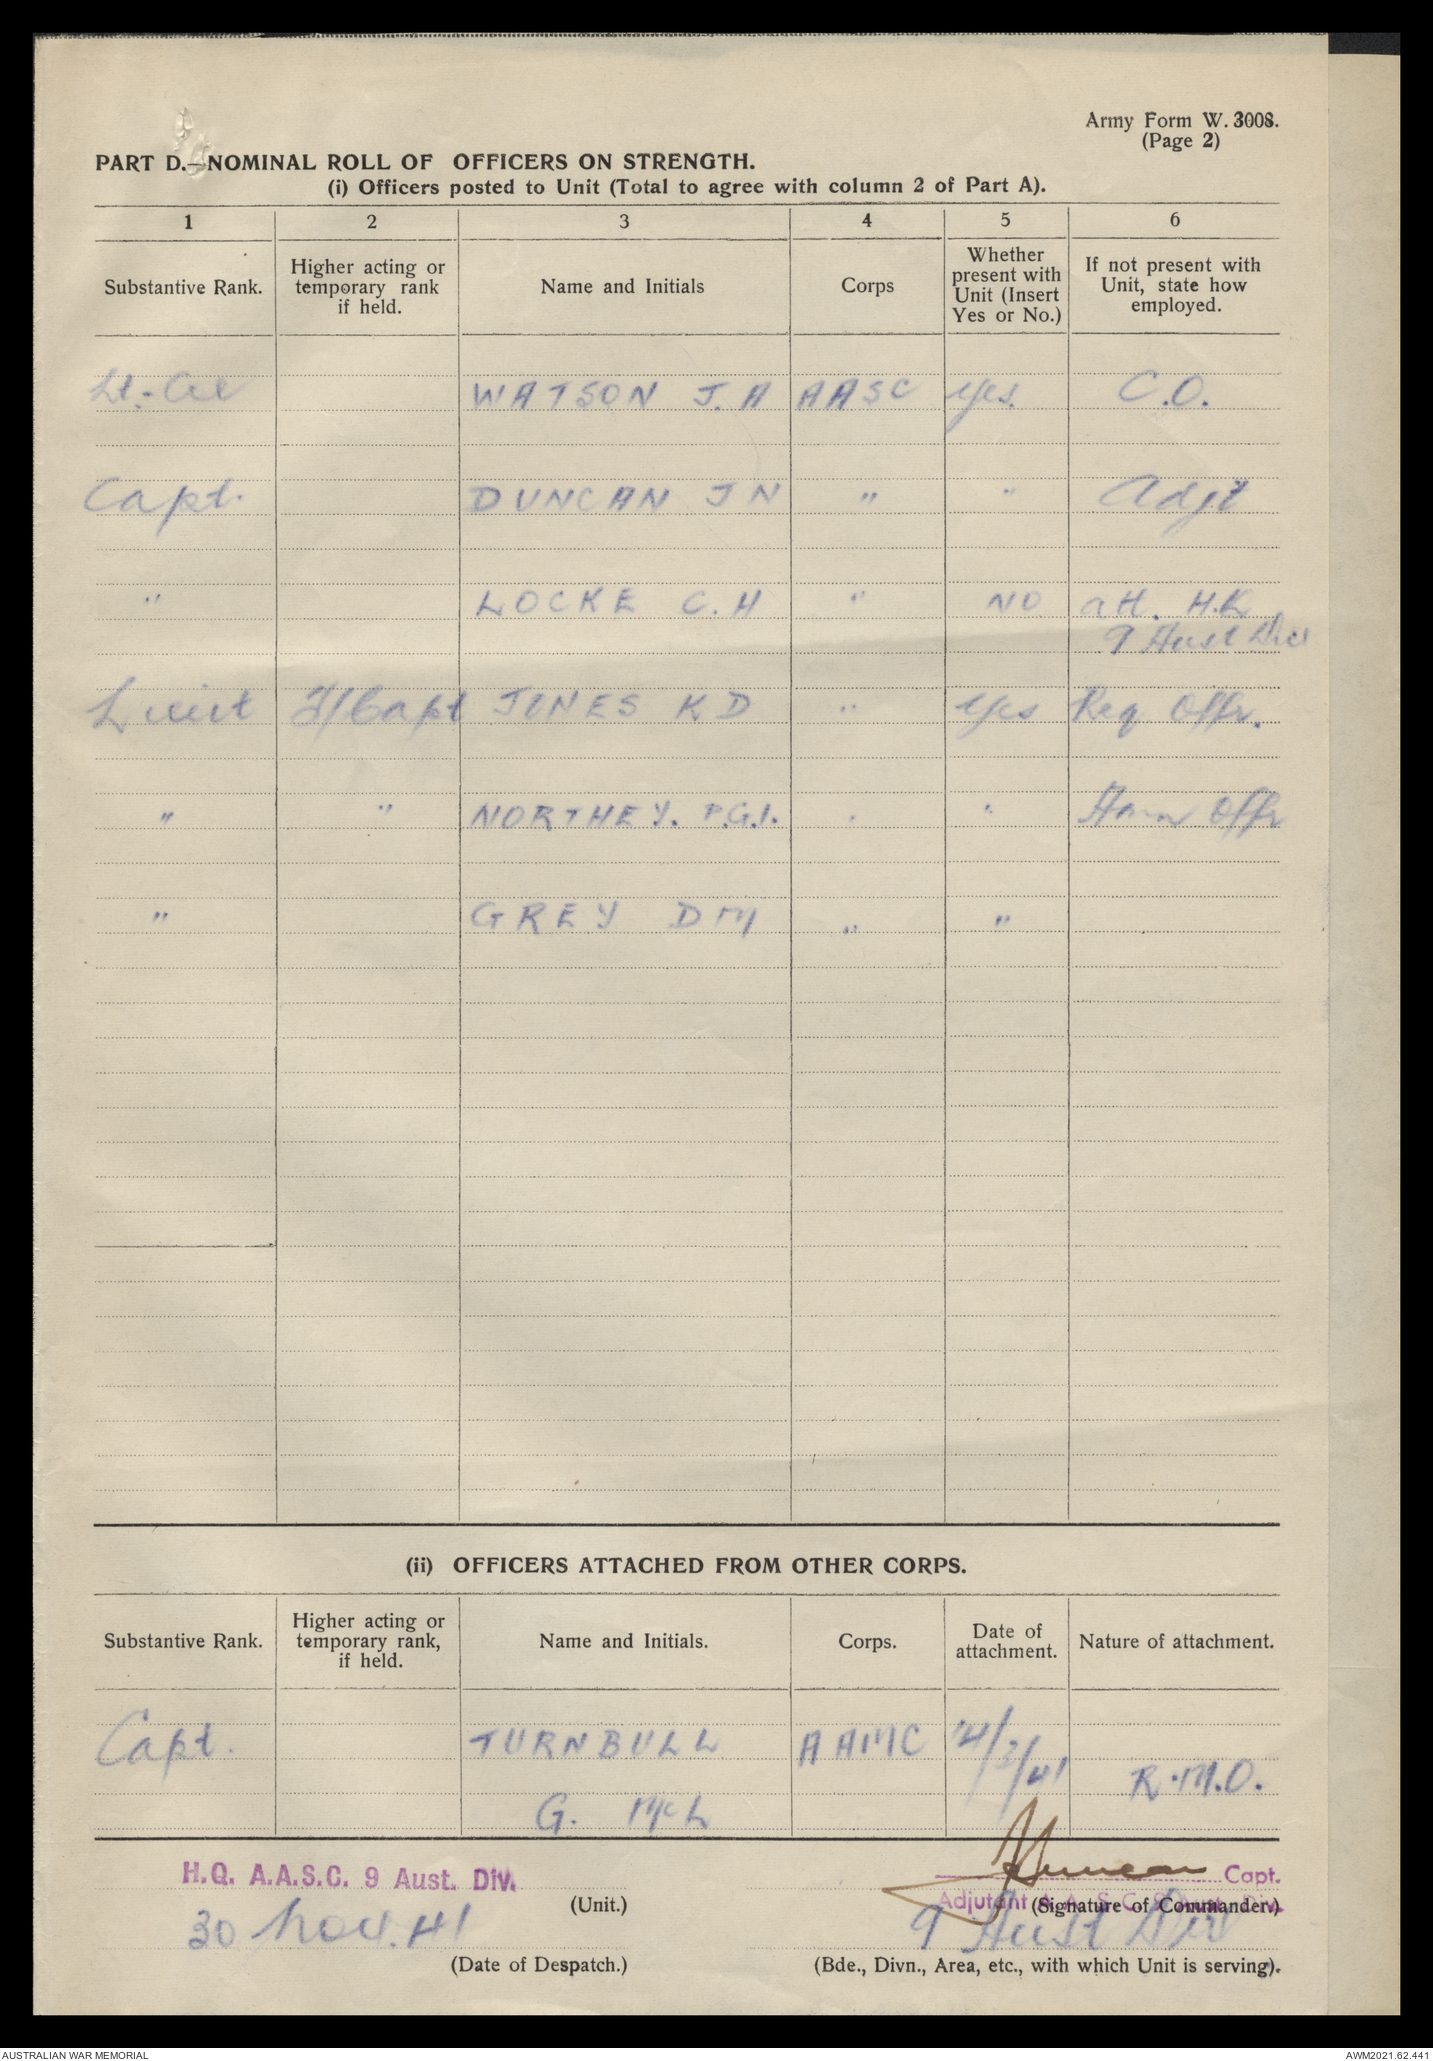 Army Form W. 3008.
(Page 2)
PART D.—NOMINAL ROLL OF OFFICERS ON STRENGTH.
(i) Officers posted to Unit (Total to agree with column 2 of Part A).
1 2 3 4 5 6
Substantive Rank. Higher acting or temporary rank if held. Name and Initials Corps Whether present with Unit (Insert Yes or No.) If not present with Unit, state how employed.
Lt.-Col WATSON J.A AASC yes. C.O.
Capt. DUNCAN J N " " Adjt
" LOCKE C.H " NO att. H.Q
9 Aust Div
Lieut T/Capt JONES K D " yes Req Offr.
" " NORTHEY. P.G.I. " " Amn Offr
" GREY D M " "
(ii) OFFICERS ATTACHED FROM OTHER CORPS.
Substantive Rank. Higher acting or temporary rank, if held. Name and Initials. Corps. Date of attachment. Nature of attachment.
Capt. TURNBULL AAMC /41 R.M.O.
G. McL
H.Q. A.A.S.C. 9 Aust. Div. Duncan Capt.
(Unit.) Adjutant A.A.S.C. 9 Aust. Div. (Signature of Commander)
30 Nov. 41 9 Aust Div
(Date of Despatch.) (Bde., Divn., Area, etc., with which Unit is serving).
AUSTRALIAN WAR MEMORIAL AWM2021.62.441